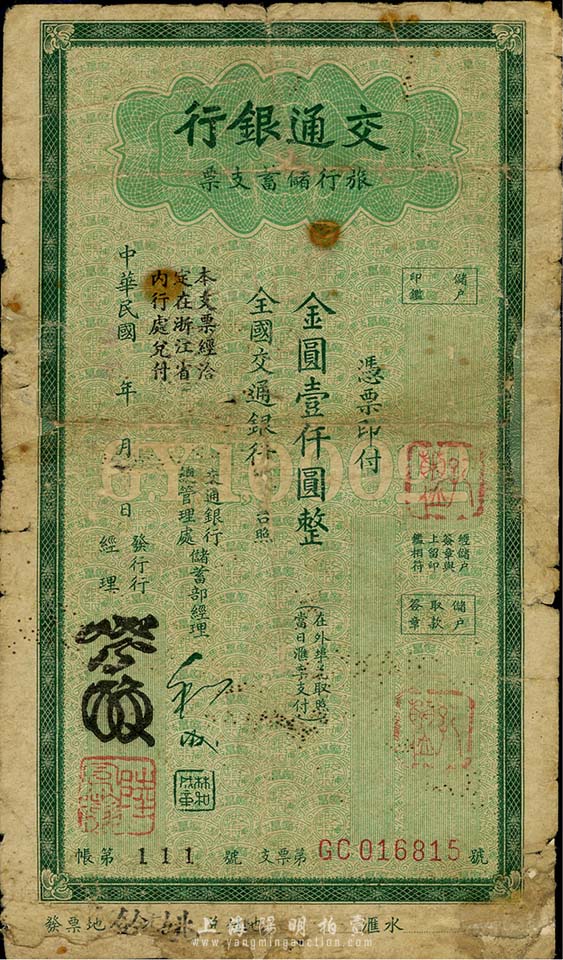 交通銀行
旅行儲蓄支票
儲户
印鑑
憑票印付
金圓壹仟圓整
全國交通銀行 台照
本支票經洽
定在浙江省
內行處兌付
中華民國 年 月 日
經儲户
簽章與
上留印
鑑相符
儲户
取款
簽章
（在外埠兌取照
當日匯率支付）
交通銀行
總管理處
儲蓄部經理
發行行
經理
林和成章
帳第 111 號
支票第 GC016815 號
發票地
匯水
上海陽明拍賣
www.yangmingauction.com